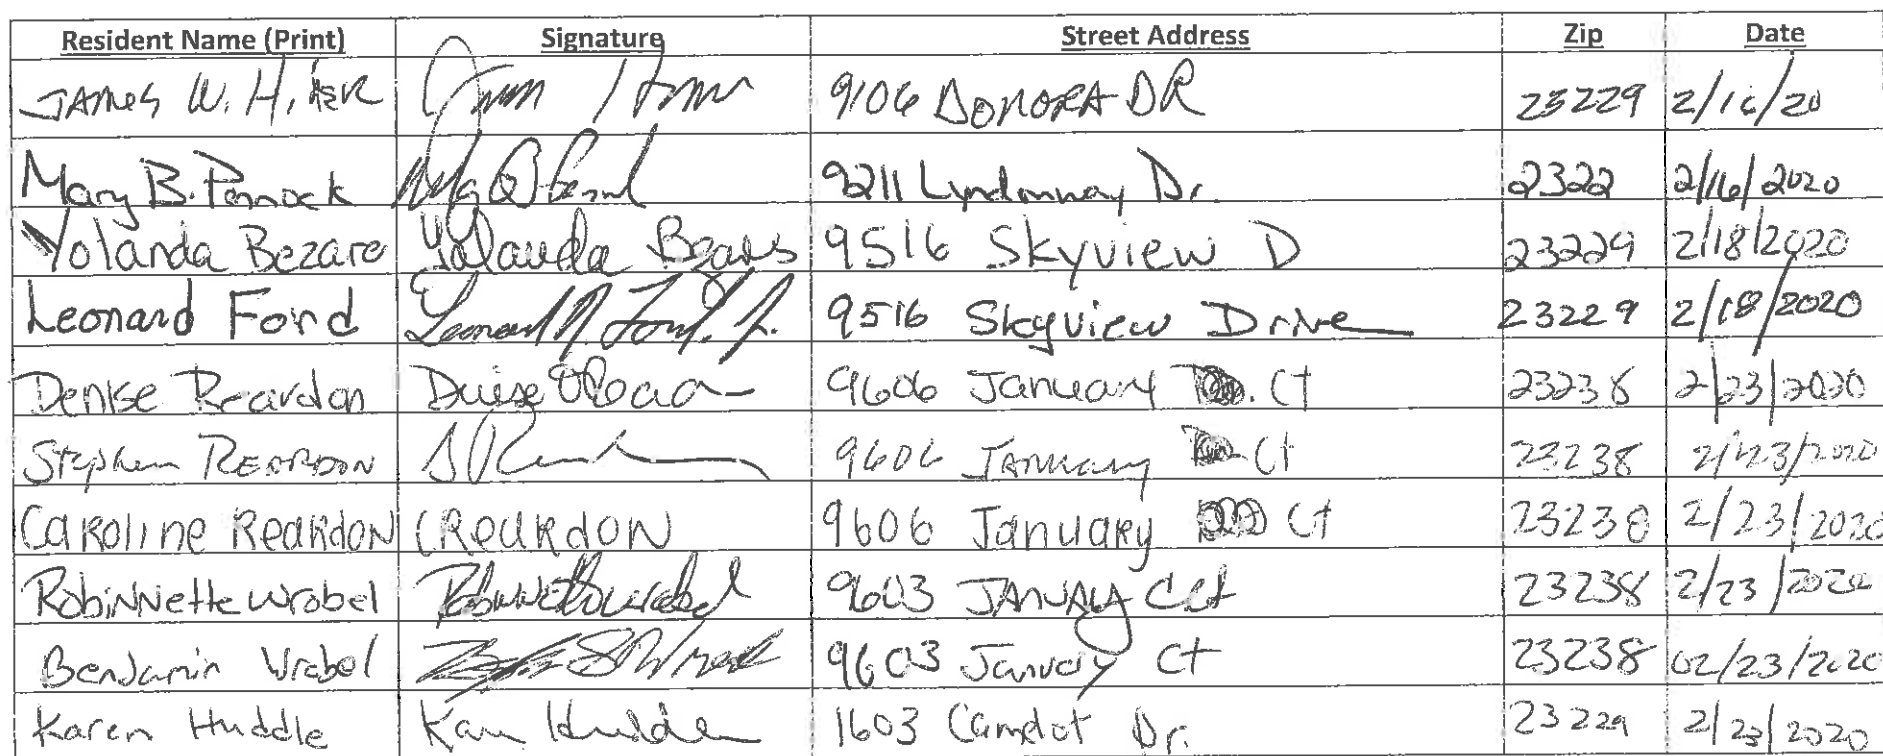 Resident Name (Print) Signature Street Address Zip Date
JAMES W. 9106 DONORA DR 23229 2/16/20
Mary B. Pennock 9211 Lyndonway Dr. 2322 2/16/2020
Yolanda Bezare Yolanda 9516 Skyview D 23229 2/18/2020
Leonard Ford Leonard N. Ford, Jr. 9516 Skyview Drive 23229 2/18/2020
Denise Reardon 9606 January Ct 23238 2/23/2020
Stephen REARDON 9606 January Ct 23238 2/23/2020
CAROLINE REARDON CREARDON 9606 January Ct 23238 2/23/2020
Robinnette Wrobel Robinnette Wrobel 9603 January Ct 23238 2/23/2020
Benjamin Wrobel 9603 January Ct 23238 02/23/2020
Karen Huddle 1603 Camelot Dr. 23229 2/23/2020